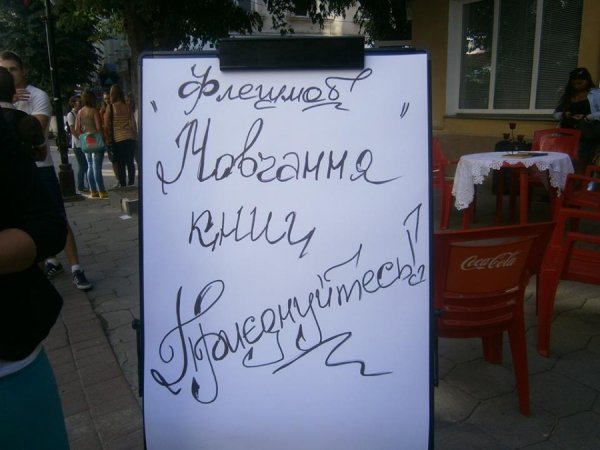 Флешмоб
"Мовчання
книг"
Приєднуйтесь!
Coca-Cola